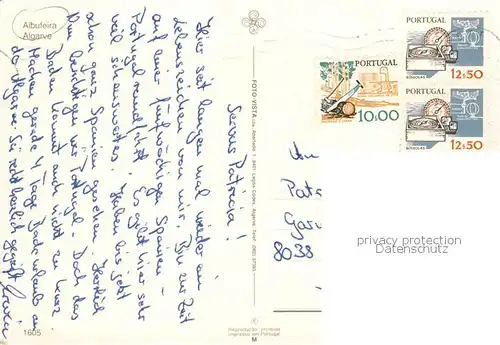 Albufeira
Algarve
Servus Patricia!
Hier seit langem mal wieder ein
Lebenszeichen von mir. Bin zur Zeit
auf einer fünfwöchigen Spanien-
Portugal rundfahrt. Es gibt hier sehr
viel sehenswertes. Haben bis jetzt
schon ganz Spanien gesehen. Herrlich
Nun besichtigen wir Portugal. Doch das
Baden kommt auch nicht zu kurz
Machen gerade 4 Tage Badeurlaub an
der Algarve. Sei recht herzlich gegrüßt
1605
FOTO-VISTA
Reprodução proibida
Impresso em Portugal
M
PORTUGAL
10$00
PORTUGAL
BÚSSOLAS
12$50
PORTUGAL
BÚSSOLAS
12$50
An
8038
privacy protection
Datenschutz